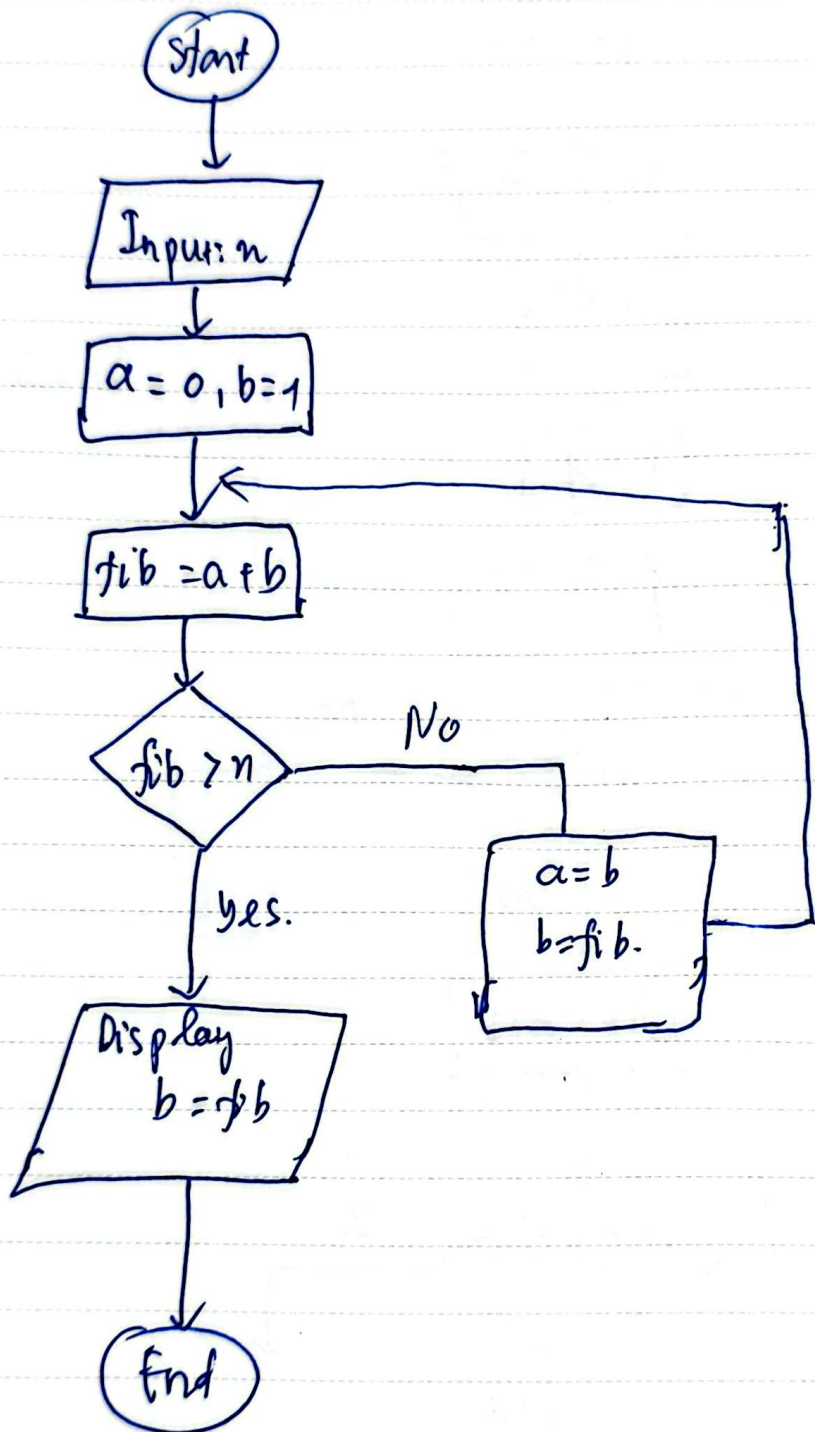 Start
Input: n
a = 0, b=1
fib = a + b
fib > n
No
yes.
a = b
b = fib.
Display
b = fib
End